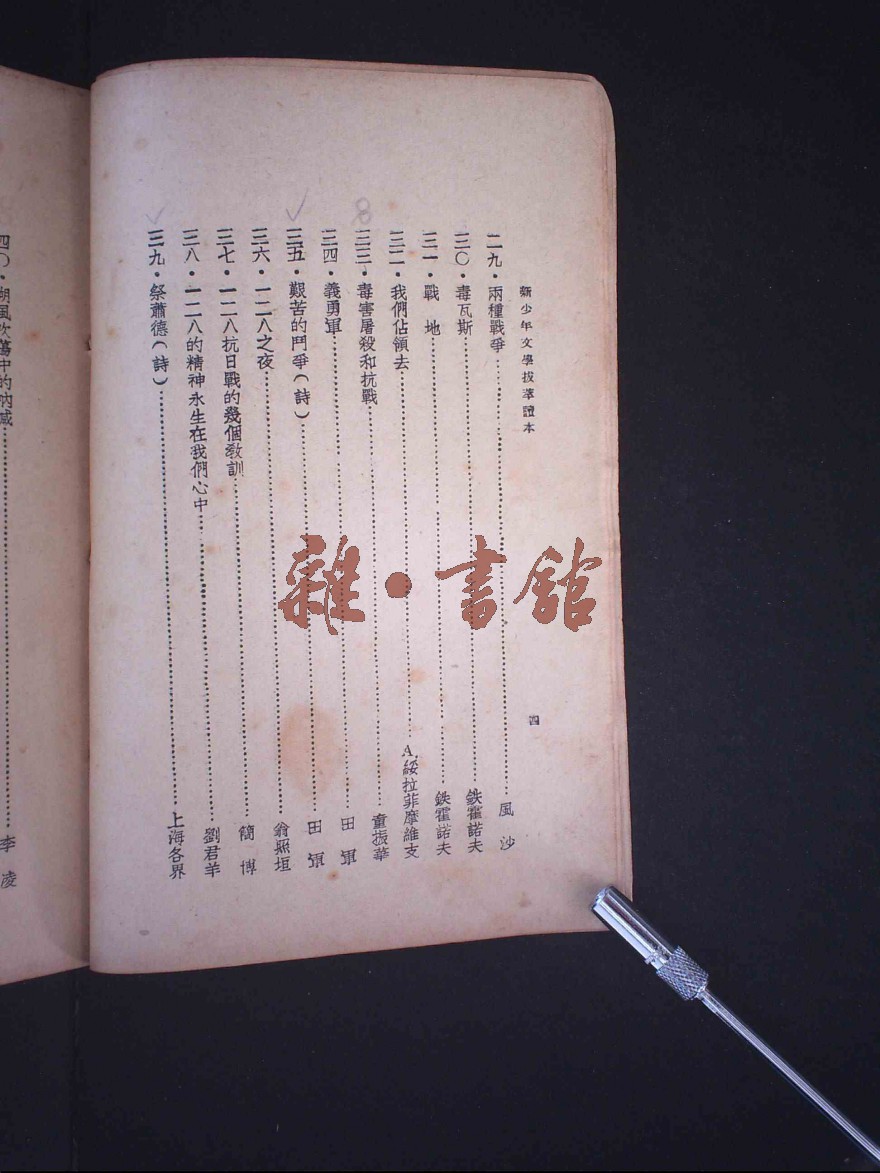 新少年文學拔萃讀本
四
二九·兩種戰爭……風沙
三〇·毒瓦斯……鉄霍諾夫
三一·戰地……鉄霍諾夫
三二·我們佔領去……A.綏拉菲摩維支
三三·毒害屠殺和抗戰……童振華
三四·義勇軍……田軍
三五·艱苦的鬥爭(詩)……田軍
三六·一二八之夜……翁照垣
三七·一二八抗日戰的幾個教訓……簡博
三八·一二八的精神永生在我們心中……劉君羊
三九·祭蕭德(詩)……上海各界
四〇·朔風吹蕩中的吶喊……李凌
8
雜·書館